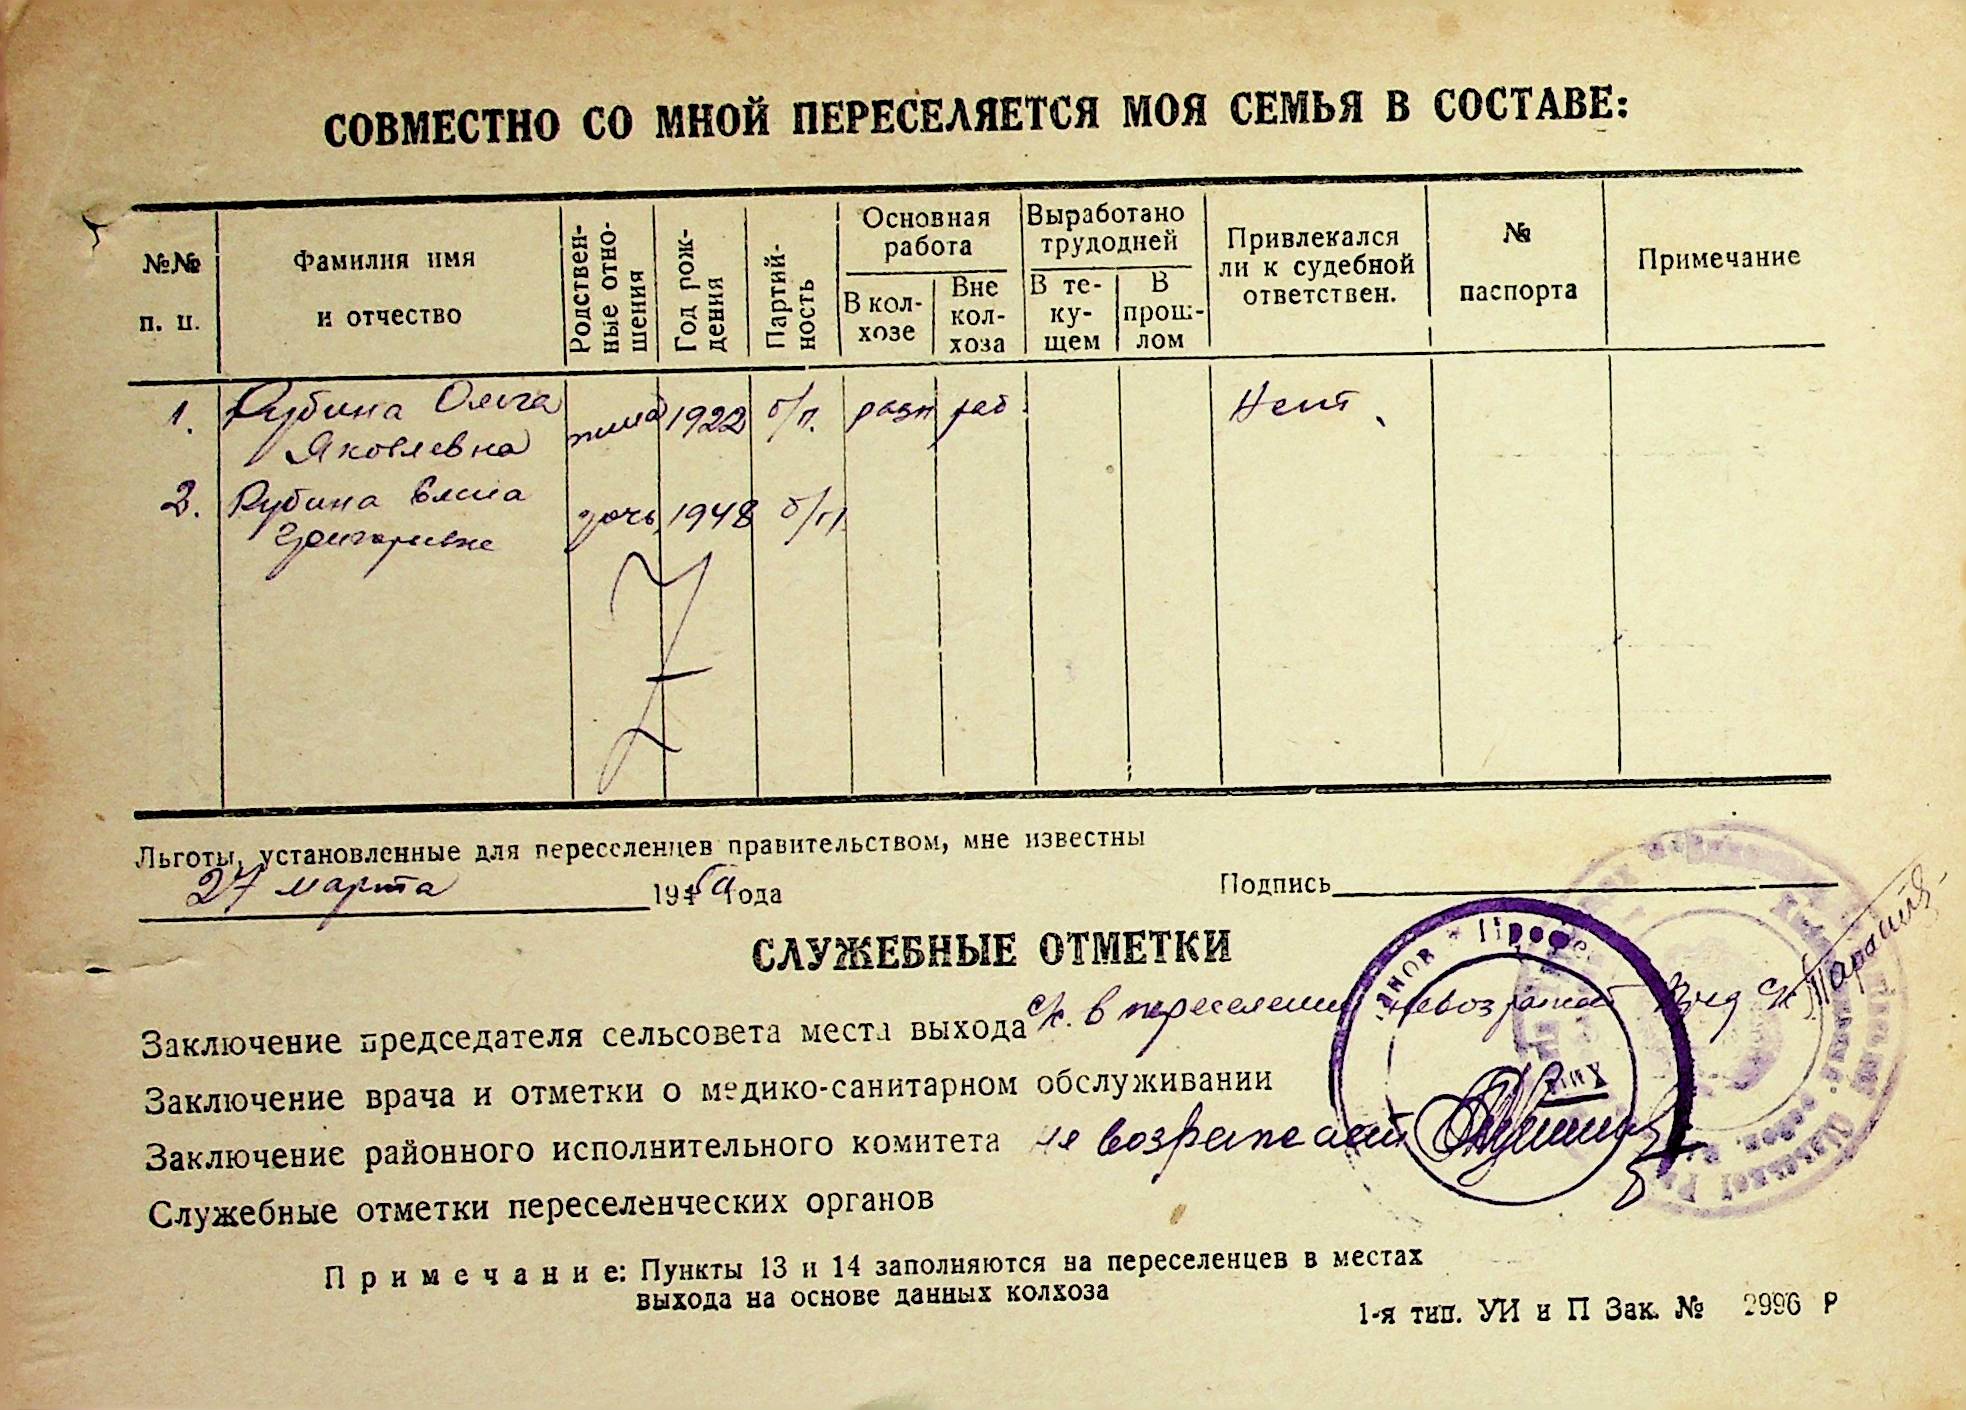 СОВМЕСТНО СО МНОЙ ПЕРЕСЕЛЯЕТСЯ МОЯ СЕМЬЯ В СОСТАВЕ:
№№ п. п.
Фамилия имя и отчество
Родственные отношения
Год рождения
Партийность
Основная работа
В колхозе
Вне колхоза
Выработано трудодней
В текущем
В прошлом
Привлекался ли к судебной ответствен.
№ паспорта
Примечание
1. Рубина Ольга жена 1922 б/п. разн раб. Нет
Яковлевна
2. Рубина Елена дочь 1948 б/п.
Григоревна
Льготы, установленные для переселенцев правительством, мне известны
27 марта 1950 года Подпись
СЛУЖЕБНЫЕ ОТМЕТКИ
Заключение председателя сельсовета места выхода с/с. в переселении невозражает Пред с/с
Заключение врача и отметки о медико-санитарном обслуживании
Заключение районного исполнительного комитета не возражает
Служебные отметки переселенческих органов
Примечание: Пункты 13 и 14 заполняются на переселенцев в местах
выхода на основе данных колхоза
1-я тип. УИ и П Зак. № 2996 Р